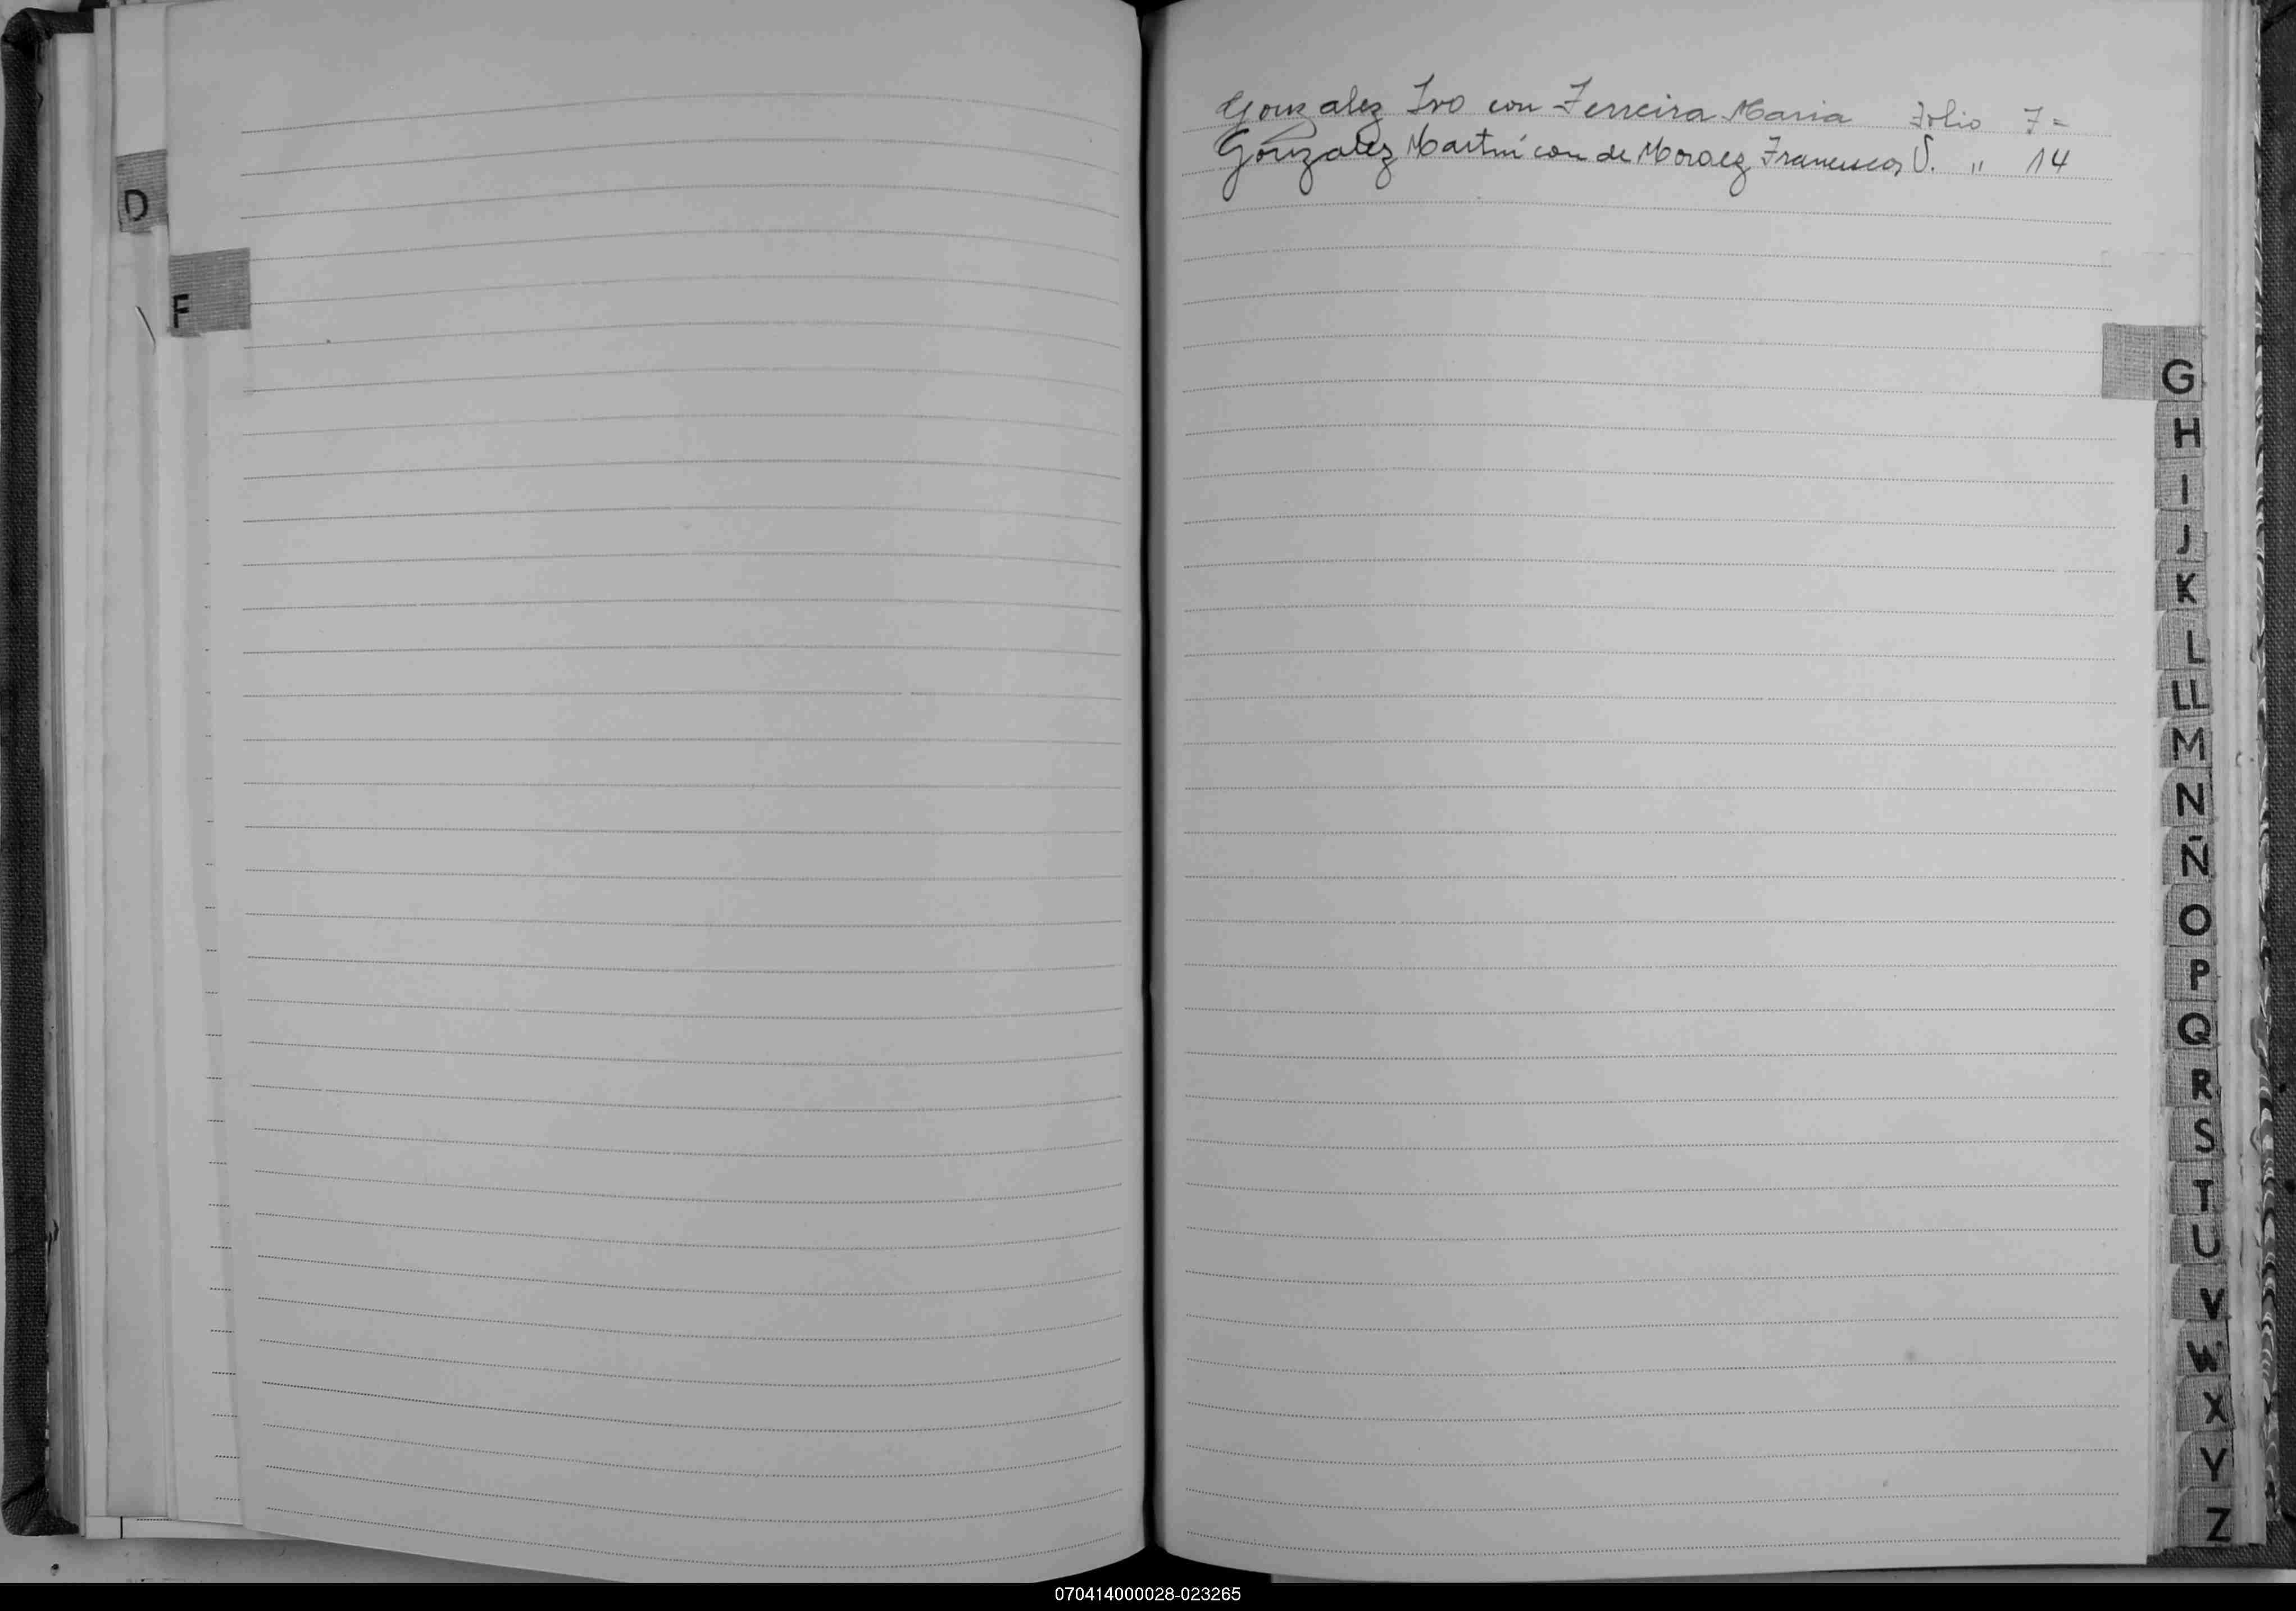 Gonzalez Ivo con Ferreira Maria Folio 7=
Gonzalez Martin con de Moraez Francisca V. " 14
D
F
G
H
I
J
K
L
LL
M
N
Ñ
O
P
Q
R
S
T
U
V
W
X
Y
Z
070414000028-023265